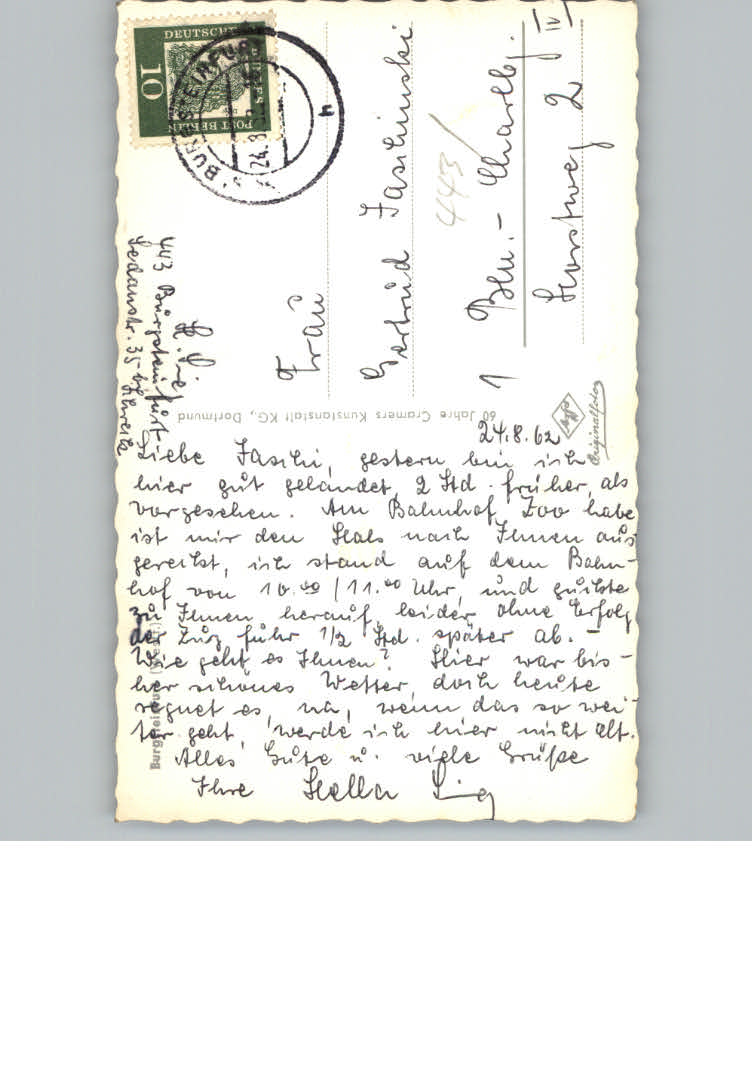 24.8.62
Liebe Jaschi, gestern bin ich
hier gut gelandet, 2 Std. früher, als
vorgesehen. Am Bahnhof Zoo habe
ist mir den Hals nach Ihnen aus
gereckt, ich stand auf dem Bahn-
hof von 10.00 / 11.00 Uhr, und guckte
zu Ihnen herauf, leider ohne Erfolg
der Zug fuhr 1/2 Std. später ab. –
Wie geht es Ihnen? Hier war bis-
her schönes Wetter, doch heute
regnet es, na, wenn das so wei-
ter geht, werde ich hier nicht alt.
Alles Gute u. viele Grüße
Ihre Hella
Frau
Gertrud Jaschinski
1 Bln.- Charlbg.
Horstweg 2 IV
443
H.
443 Burgsteinfurt
Sedanstr. 35 b/
60 Jahre Cramers Kunstanstalt KG., Dortmund
Agfa
Originalfoto
Burgsteinfurt
DEUTSCHE BUNDESPOST BERLIN
10
BURGSTEINFURT
24.8.62
h